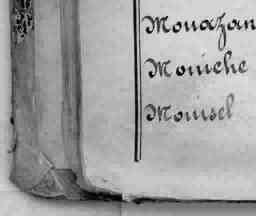 Mouazan
Moniche
Mouisel